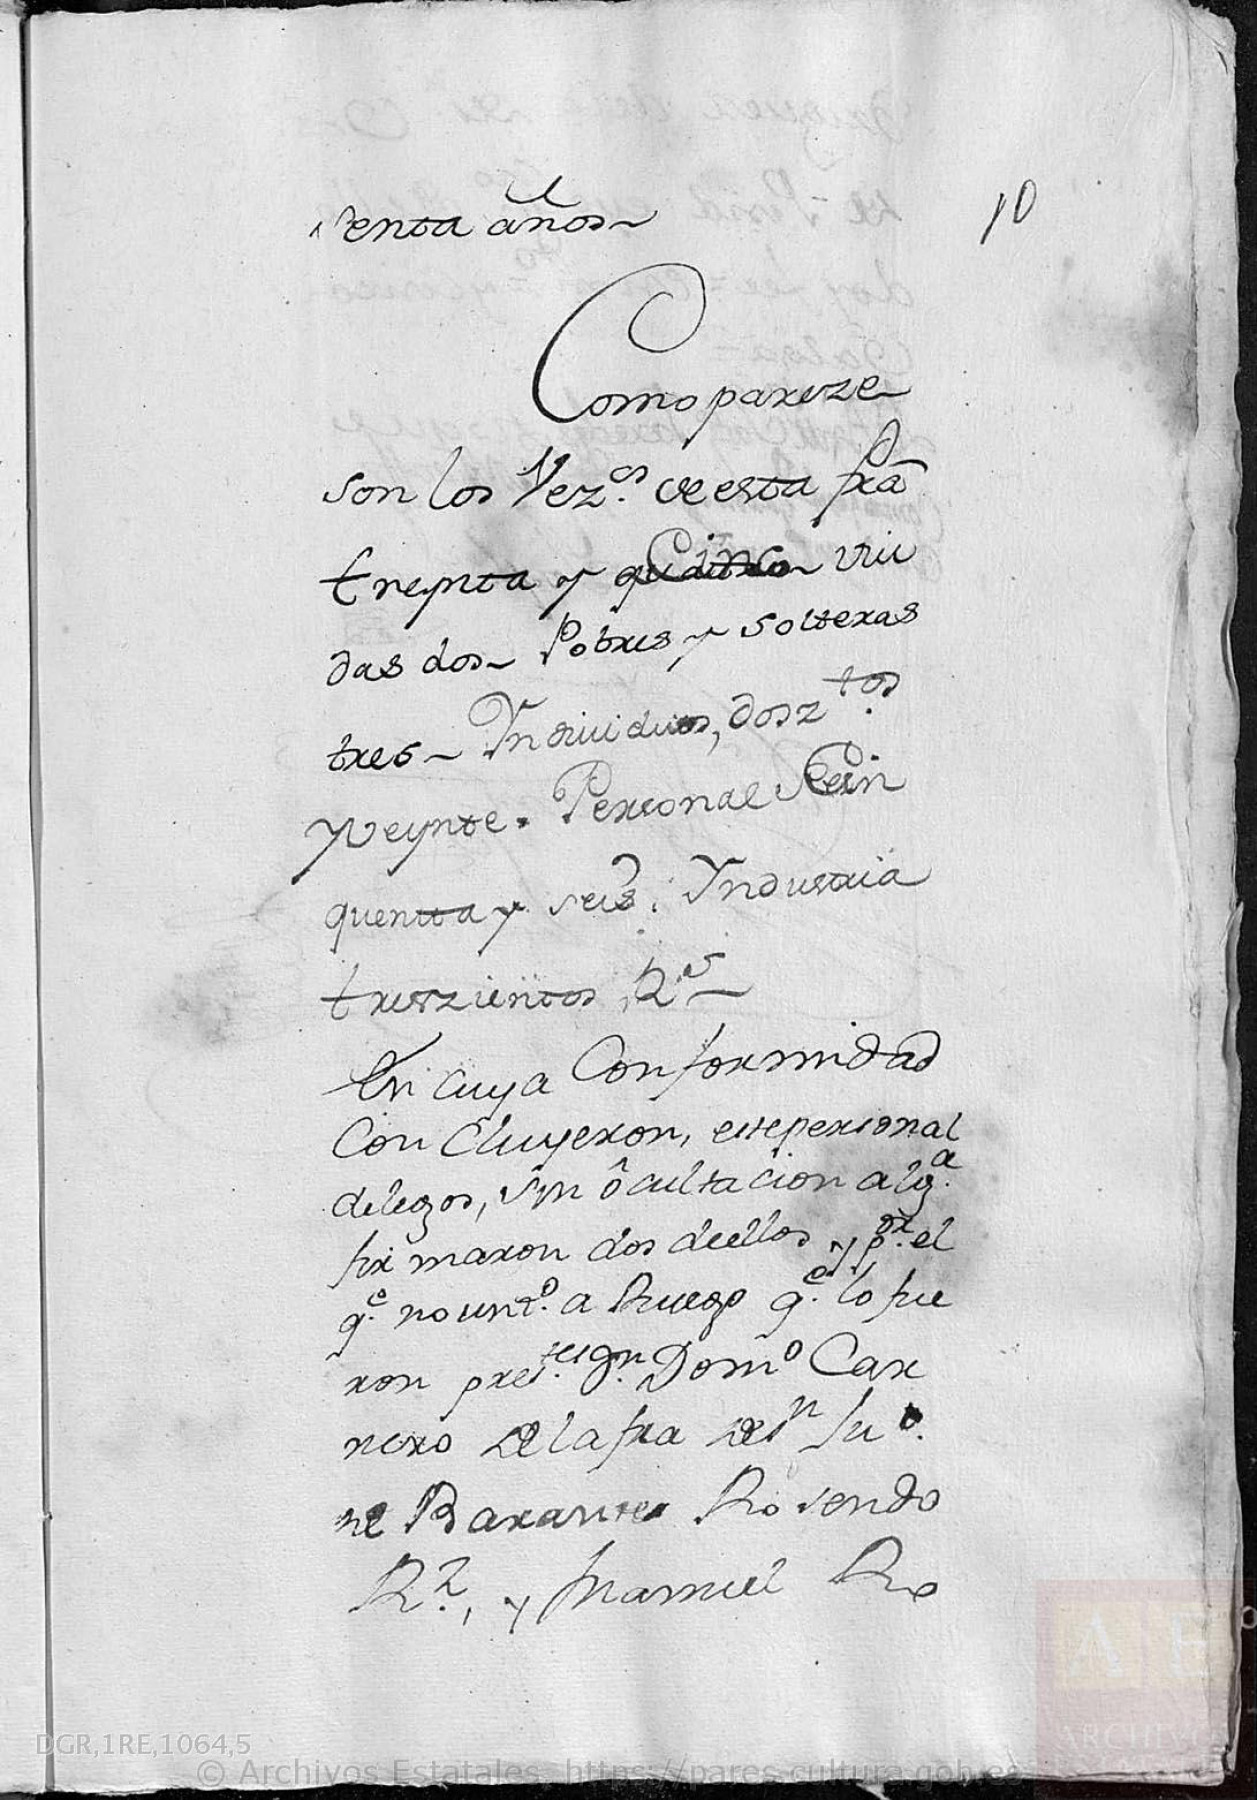 senta años
10
Como pareze
son los Vez.os de esta fra
treynta y Cinco viu
das dos Pobres y solteras
tres Yndividuos, dosz.tos
y veynte. Personal Cin
quentta y seis. Yndustria
treszientos R.s
En cuya Conformidad
Con Cluyeron, este personal
de legos, sin ôcultacion alg.a
firmaron dos de ellos y p.or el
q.e no unt.o a Ruego q.e lo fue
ron pres.tes Dom.o Car
nero de la fra de s.n Ju.o
de Barantes Rosendo
R.z, y Manuel Ro
DGR,1RE,1064,5
© Archivos Estatales, https://pares.cultura.gob.es
AE
ARCHIVOS